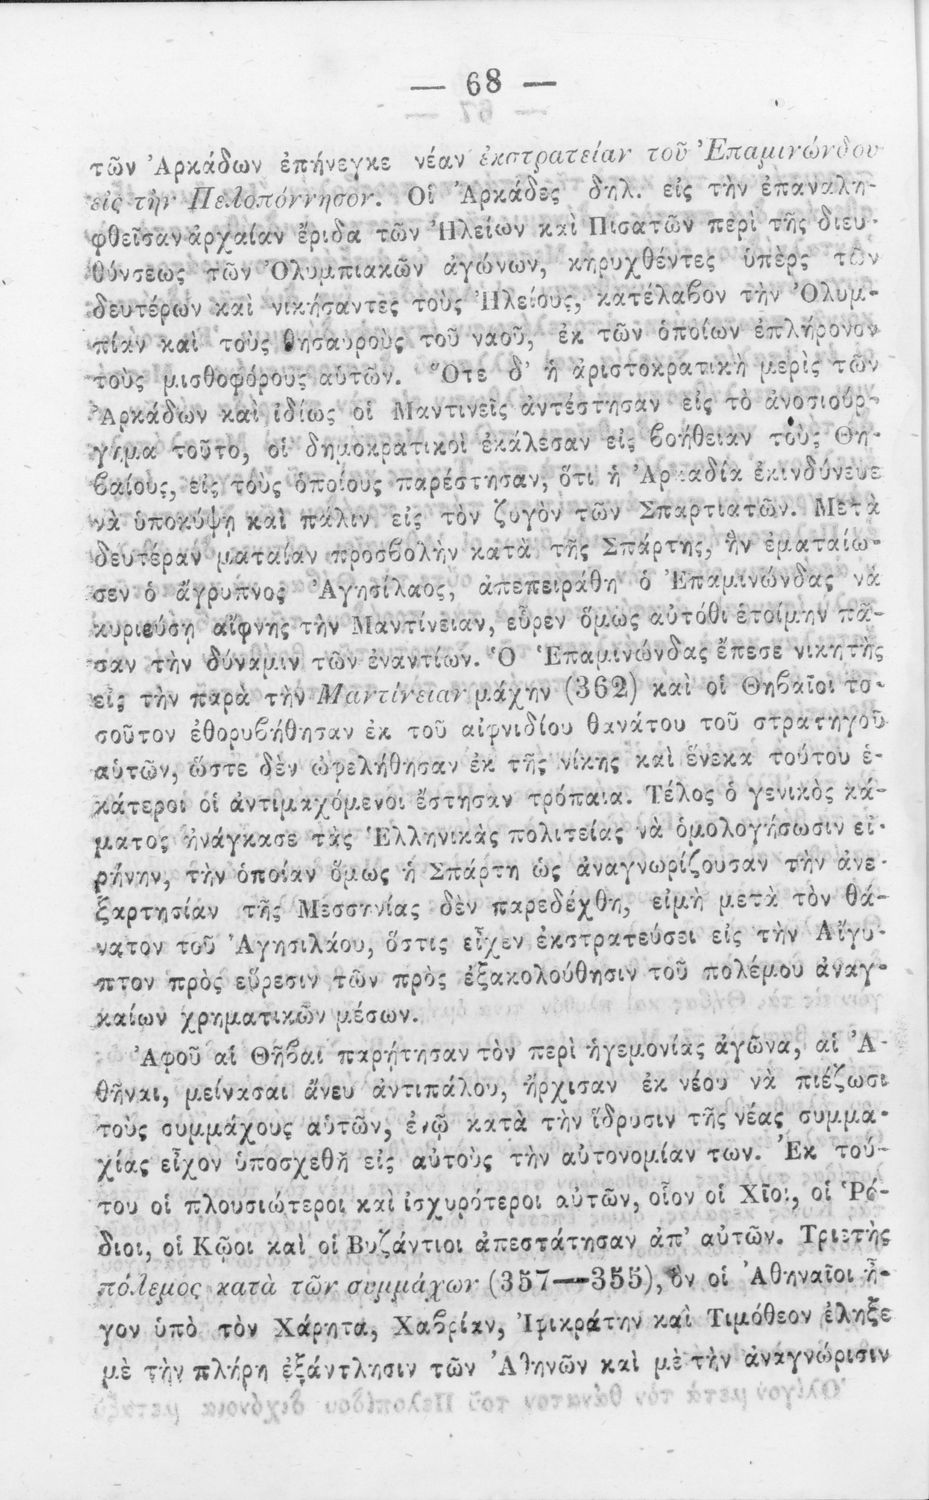 — 68 —
τῶν Ἀρκάδων ἐπήνεγκε νέαν ἐκστρατείαν τοῦ Ἐπαμινώνδου
εἰς τὴν Πελοπόννησον. Οἱ Ἀρκάδες δηλ. εἰς τὴν ἐπαναλη-
φθεῖσαν ἀρχαίαν ἔριδα τῶν Ἠλείων καὶ Πισατῶν περὶ τῆς διευ-
θύνσεως τῶν Ὀλυμπιακῶν ἀγώνων, κηρυχθέντες ὑπὲρ τῶν
δευτέρων καὶ νικήσαντες τοὺς Ἠλείους, κατέλαβον τὴν Ὀλυμ-
πίαν καὶ τοὺς θησαυροὺς τοῦ ναοῦ, ἐκ τῶν ὁποίων ἐπλήρονον
τοὺς μισθοφόρους αὑτῶν. Ὅτε δ' ἡ ἀριστοκρατικὴ μερὶς τῶν
Ἀρκάδων καὶ ἰδίως οἱ Μαντινεῖς ἀντέστησαν εἰς τὸ ἀνοσιούρ-
γημα τοῦτο, οἱ δημοκρατικοὶ ἐκάλεσαν εἰς βοήθειαν τοὺς Θη-
βαίους, εἰς τοὺς ὁποίους παρέστησαν, ὅτι ἡ Ἀρκαδία ἐκινδύνευε
νὰ ὑποκύψῃ καὶ πάλιν εἰς τὸν ζυγὸν τῶν Σπαρτιατῶν. Μετὰ
δευτέραν ματαίαν προσβολὴν κατὰ τῆς Σπάρτης, ἣν ἐματαίω-
σεν ὁ ἄγρυπνος Ἀγησίλαος, ἀπεπειράθη ὁ Ἐπαμινώνδας νὰ
κυριεύσῃ αἴφνης τὴν Μαντίνειαν, εὗρεν ὅμως αὐτόθι ἑτοίμην πᾶ-
σαν τὴν δύναμιν τῶν ἐναντίων. Ὁ Ἐπαμινώνδας ἔπεσε νικητὴς
εἰς τὴν παρὰ τὴν Μαντίνειαν μάχην (362) καὶ οἱ Θηβαῖοι το-
σοῦτον ἐθορυβήθησαν ἐκ τοῦ αἰφνιδίου θανάτου τοῦ στρατηγοῦ
αὑτῶν, ὥστε δὲν ὠφελήθησαν ἐκ τῆς νίκης καὶ ἕνεκα τούτου ἑ-
κάτεροι οἱ ἀντιμαχόμενοι ἔστησαν τρόπαια. Τέλος ὁ γενικὸς κά-
ματος ἠνάγκασε τὰς Ἑλληνικὰς πολιτείας νὰ ὁμολογήσωσιν εἰ-
ρήνην, τὴν ὁποίαν ὅμως ἡ Σπάρτη ὡς ἀναγνωρίζουσαν τὴν ἀνε-
ξαρτησίαν τῆς Μεσσηνίας δὲν παρεδέχθη, εἰμὴ μετὰ τὸν θά-
νατον τοῦ Ἀγησιλάου, ὅστις εἶχεν ἐκστρατεύσει εἰς τὴν Αἴγυ-
πτον πρὸς εὕρεσιν τῶν πρὸς ἐξακολούθησιν τοῦ πολέμου ἀναγ-
καίων χρηματικῶν μέσων.
Ἀφοῦ αἱ Θῆβαι παρῄτησαν τὸν περὶ ἡγεμονίας ἀγῶνα, αἱ Ἀ-
θῆναι, μείνασαι ἄνευ ἀντιπάλου, ἤρχισαν ἐκ νέου νὰ πιέζωσι
τοὺς συμμάχους αὑτῶν, ἐνῷ κατὰ τὴν ἵδρυσιν τῆς νέας συμμα-
χίας εἶχον ὑποσχεθῆ εἰς αὐτοὺς τὴν αὐτονομίαν των. Ἐκ τού-
του οἱ πλουσιώτεροι καὶ ἰσχυρότεροι αὐτῶν, οἷον οἱ Χῖοι, οἱ Ῥό-
διοι, οἱ Κῷοι καὶ οἱ Βυζάντιοι ἀπεστάτησαν ἀπ' αὐτῶν. Τριετὴς
πόλεμος κατὰ τῶν συμμάχων (357—355), ὃν οἱ Ἀθηναῖοι ἦ-
γον ὑπὸ τὸν Χάρητα, Χαβρίαν, Ἰφικράτην καὶ Τιμόθεον ἔληξε
μὲ τὴν πλήρη ἐξάντλησιν τῶν Ἀθηνῶν καὶ μὲ τὴν ἀναγνώρισιν